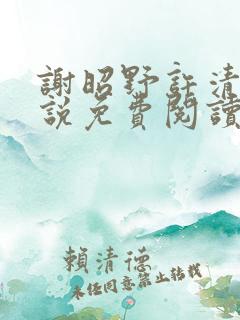 謝昭野許清
說免費閱讀
賴清德
未任同意禁止转載